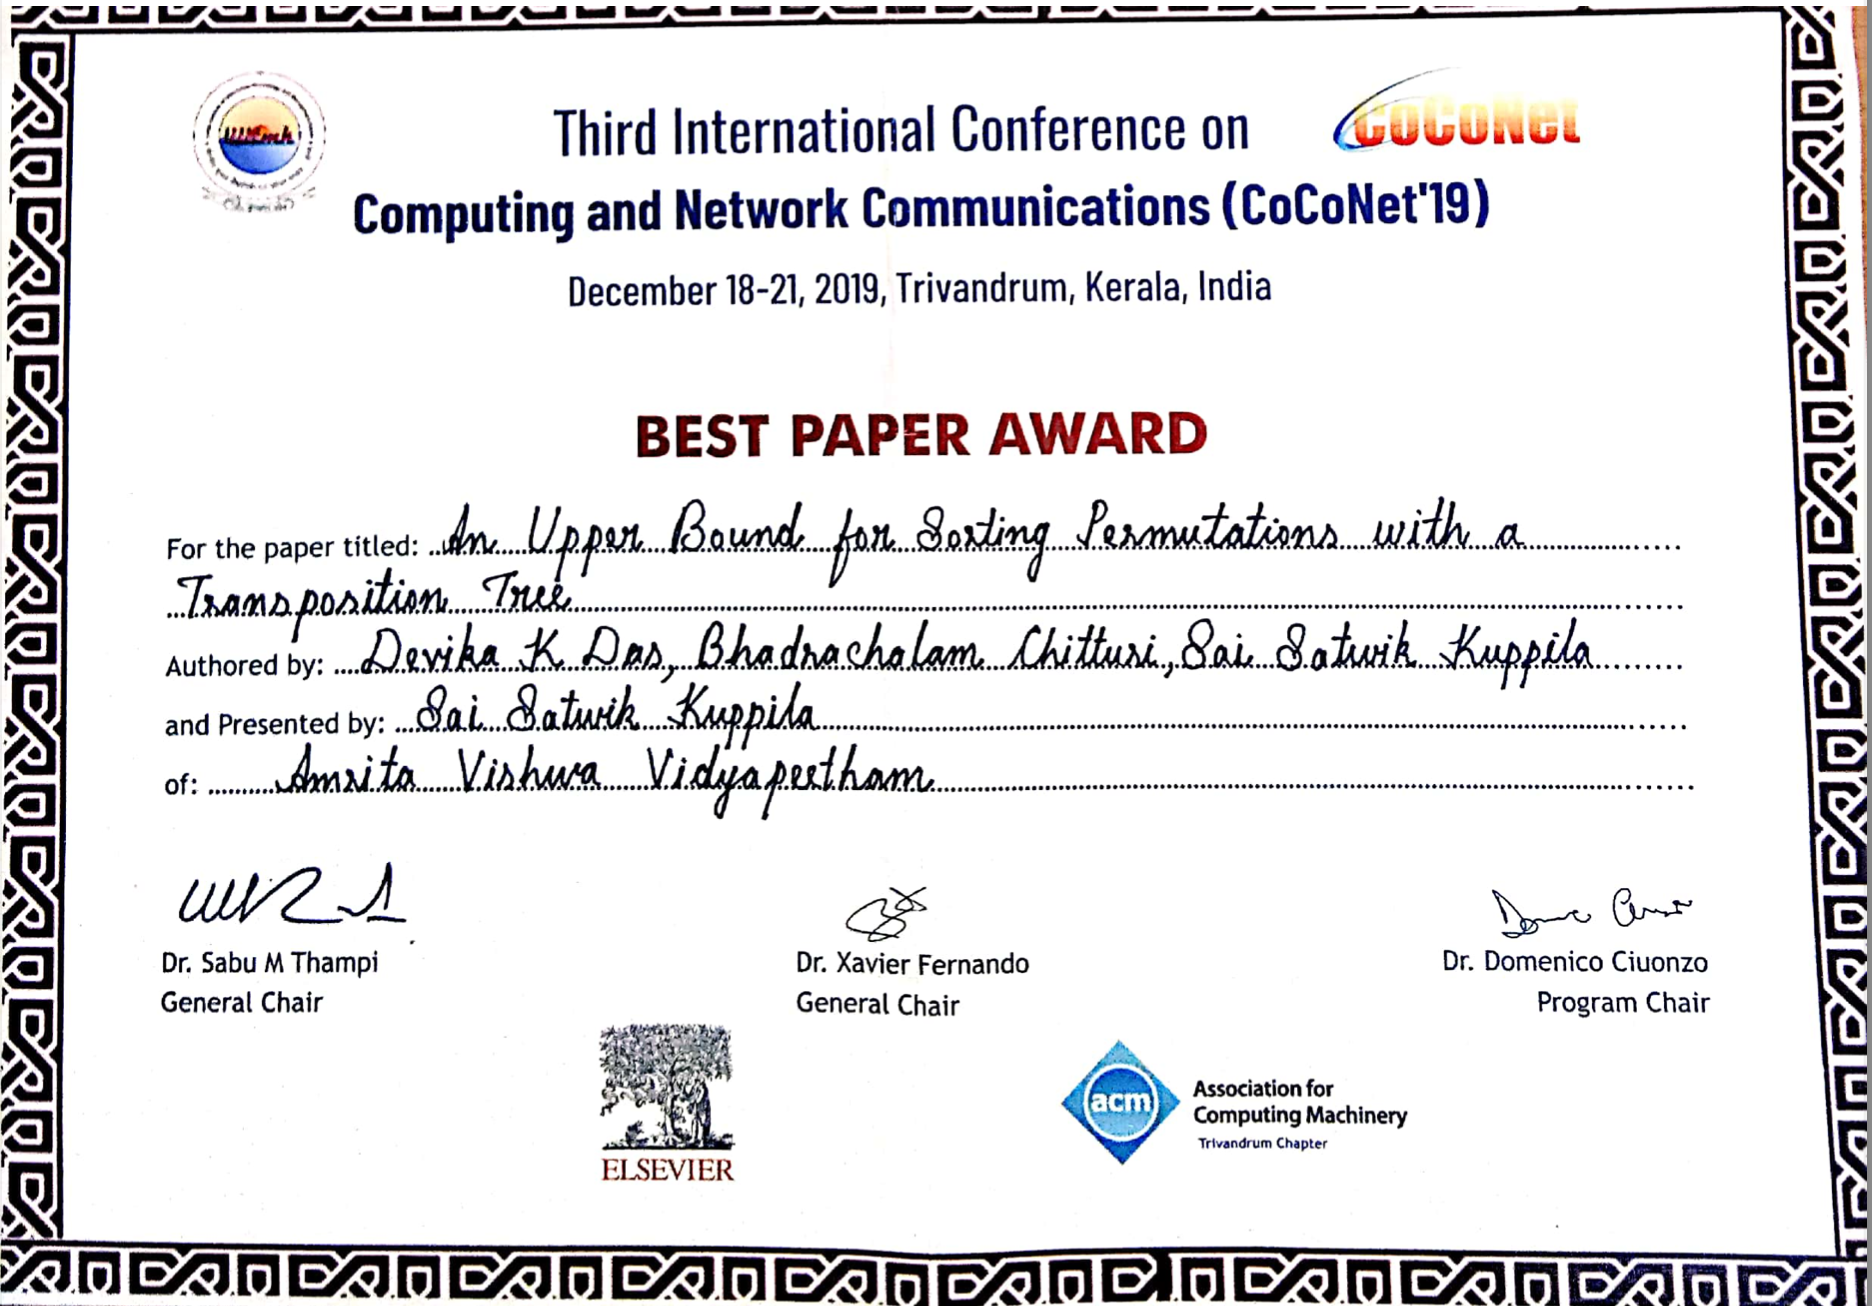 Third International Conference on
CoCoNet
Computing and Network Communications (CoCoNet'19)
December 18-21, 2019, Trivandrum, Kerala, India
BEST PAPER AWARD
For the paper titled: An Upper Bound for Sorting Permutations with a
Transposition Tree
Authored by: Devika K Das, Bhadrachalam Chitturi, Sai Satwik Kuppila
and Presented by: Sai Satwik Kuppila
of: Amrita Vishwa Vidyapeetham
Dr. Sabu M Thampi
General Chair
Dr. Xavier Fernando
General Chair
Dr. Domenico Ciuonzo
Program Chair
ELSEVIER
acm
Association for
Computing Machinery
Trivandrum Chapter